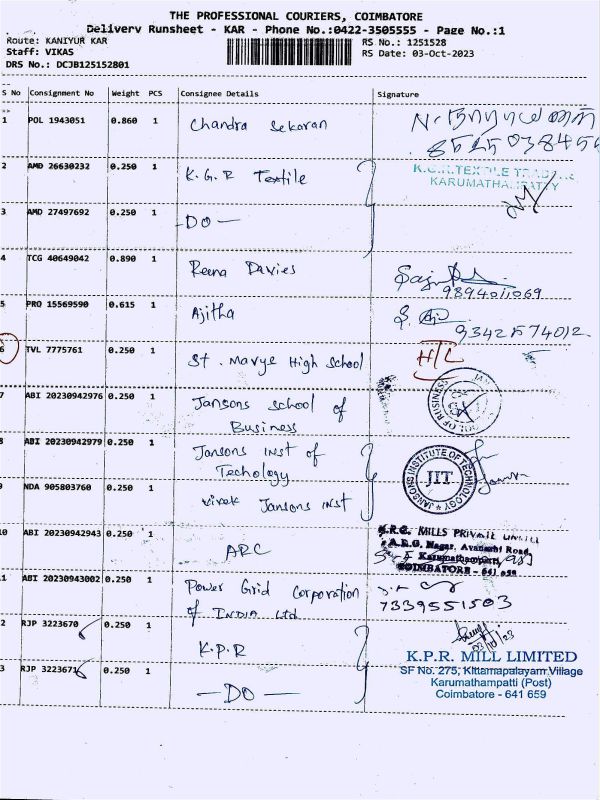 THE PROFESSIONAL COURIERS, COIMBATORE
Delivery Runsheet - KAR - Phone No.:0422-3505555 - Page No.:1
Route: KANIYUR KAR
RS No.: 1251528
Staff: VIKAS
RS Date: 03-Oct-2023
DRS No.: DCJB125152801
S No Consignment No Weight PCS Consignee Details Signature
1 POL 1943051 0.860 1 Chandra Sekaran
2 AMD 26630232 0.250 1 K.G.R Textile
KARUMATHAMPATTY
3 AMD 27497692 0.250 1 -DO-
4 TCG 40649042 0.890 1 Reena Davies
9894011069
5 PRO 15569590 0.615 1 Ajitha
6 TVL 7775761 0.250 1 St. Marye High School H/L
7 ABI 20230942976 0.250 1 Jansons School of
Business
8 ABI 20230942979 0.250 1 Jansons Inst of
Techology
JANSONS INSTITUTE OF TECHNOLOGY
JIT
9 NDA 905803760 0.250 1 vivek Jansons Inst
10 ABI 20230942943 0.250 1 ARC
MILLS PRIVATE LIMITED
Nagar, Avanashi Road,
Karumathampatti,
COIMBATORE - 641 659
11 ABI 20230943002 0.250 1 Power Grid Corporation
of INDIA Ltd
7339551503
2 RJP 3223670 0.250 1 K.P.R
03/10/23
3 RJP 3223671 0.250 1 -DO-
K.P.R. MILL LIMITED
SF No. 275, Kittampalayam Village
Karumathampatti (Post)
Coimbatore - 641 659